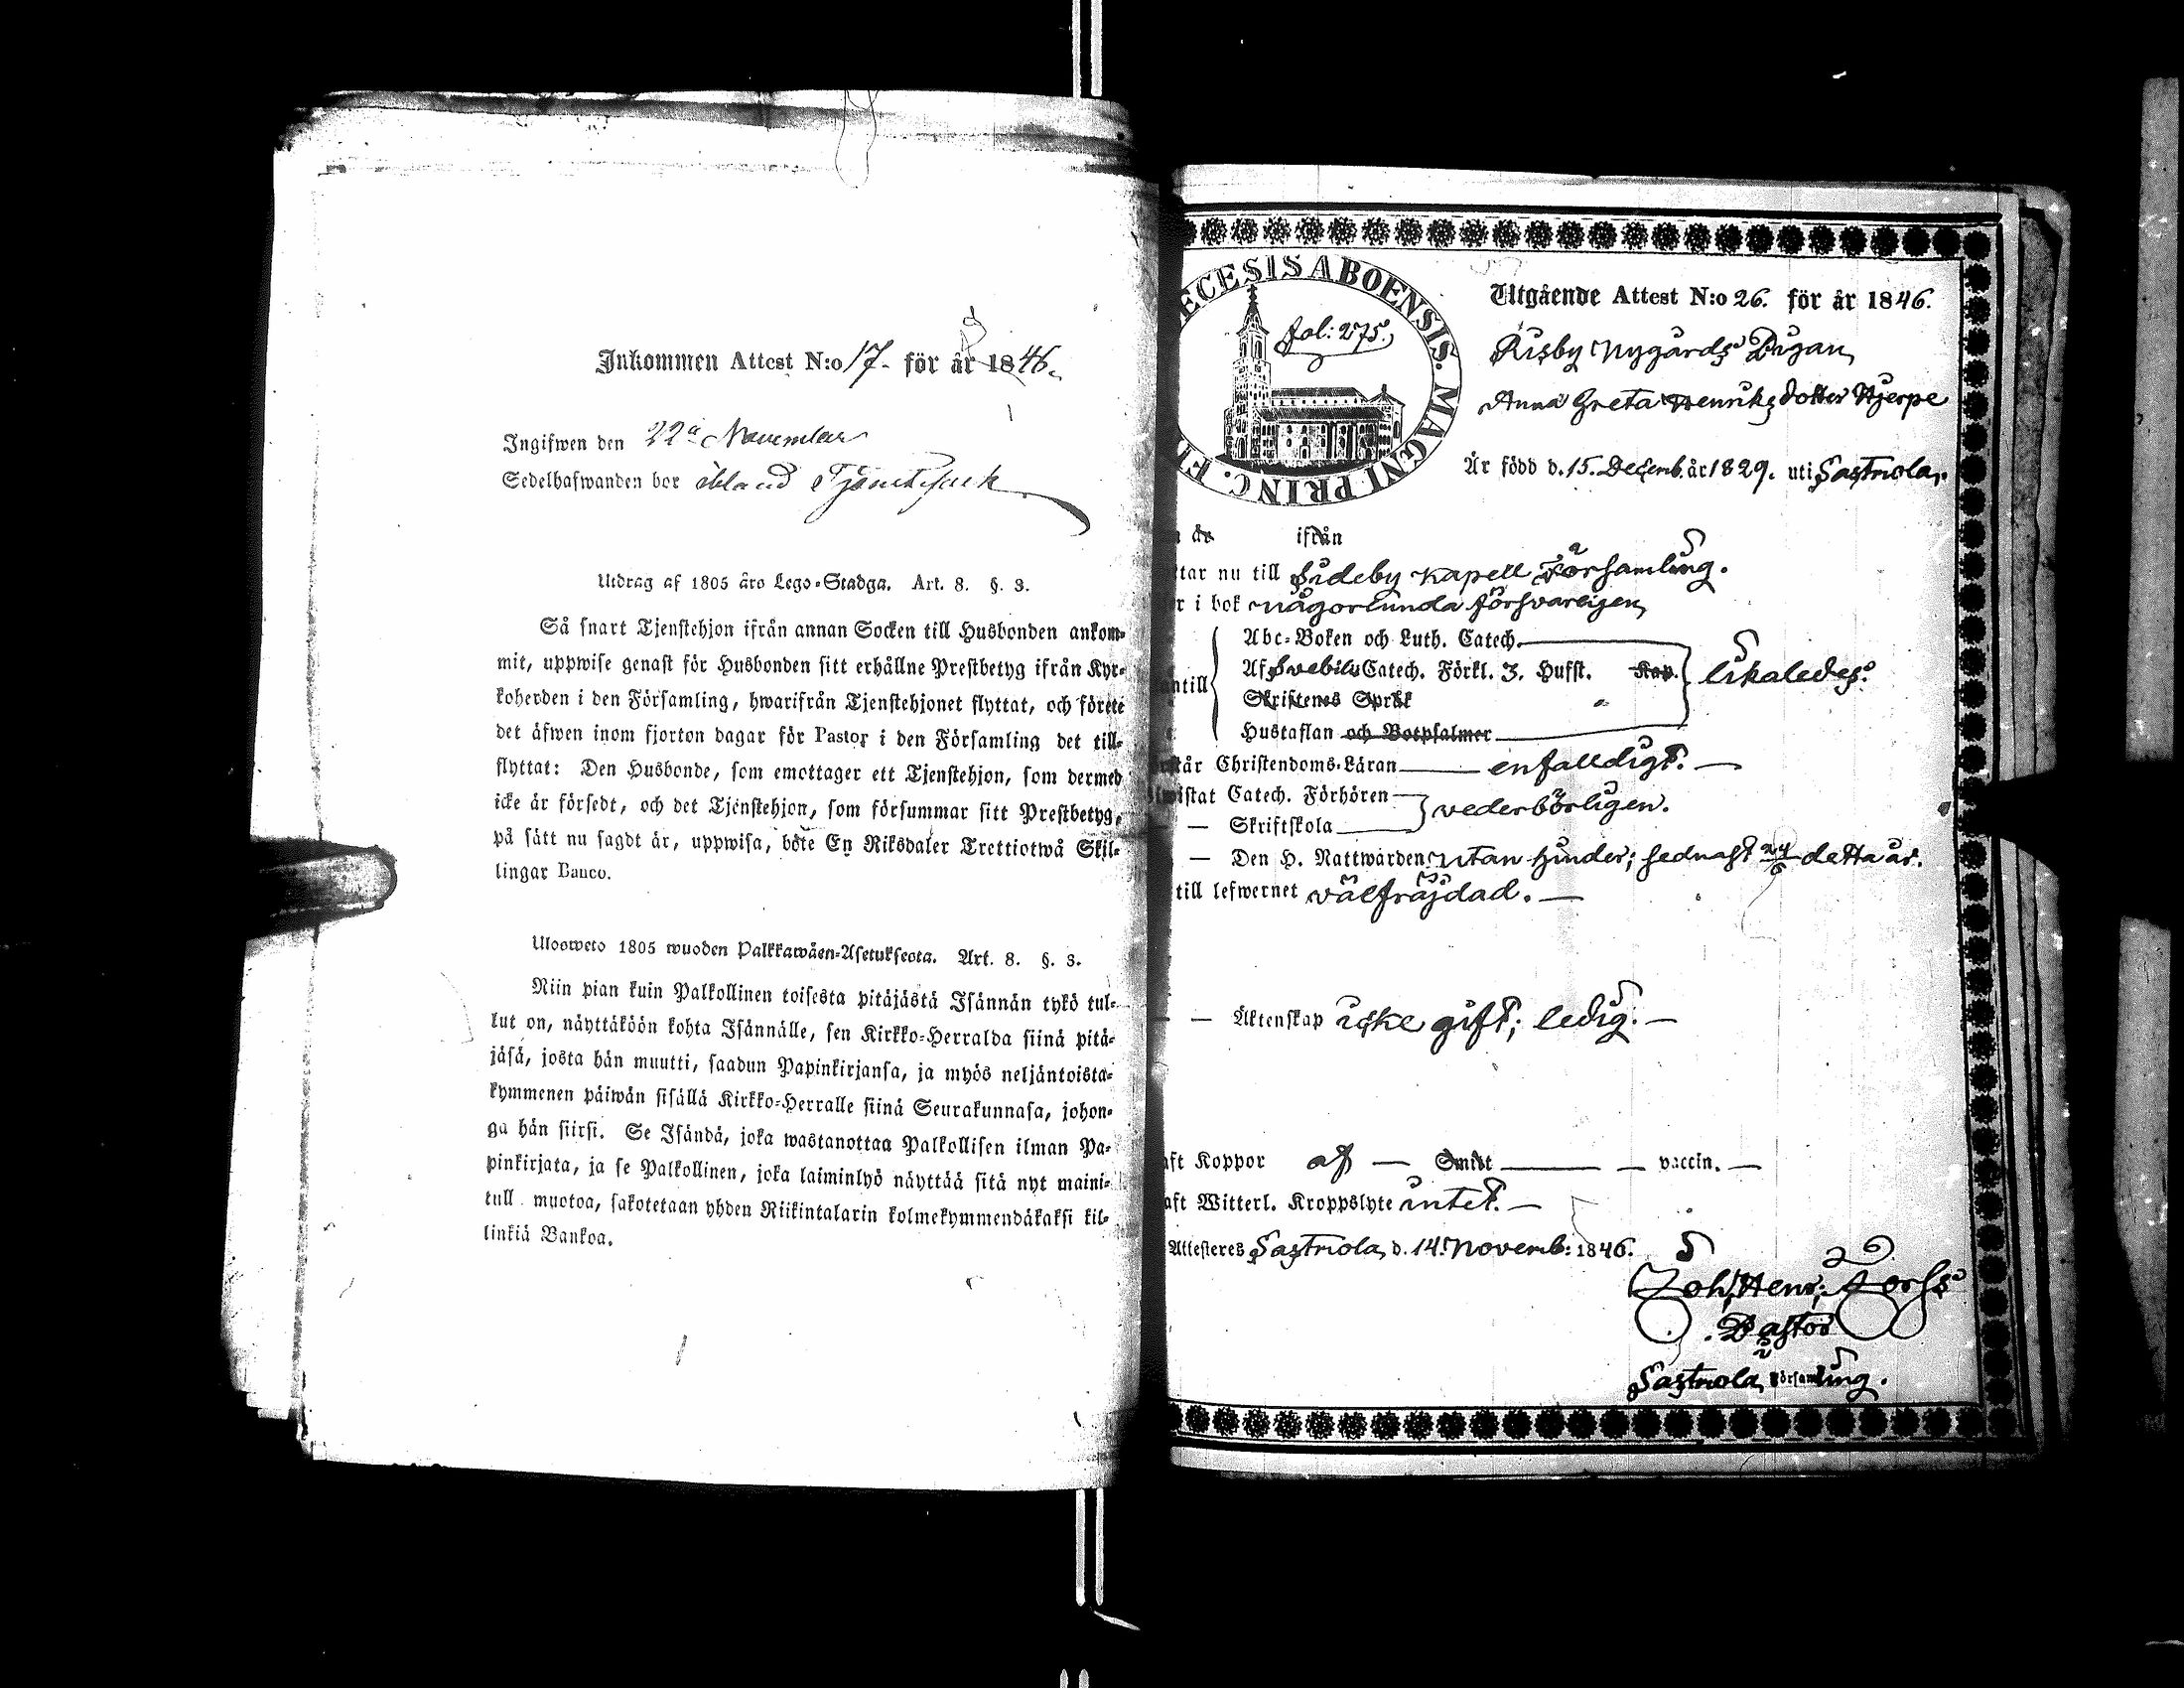 Inkommen Attest N:o 17. för år 1846.
Ingifwen den 22a November
Sedelhafwanden bor ibland Tjenstefolk
Utdrag af 1805 års Lego-Stadga. Art. 8. §. 3.
Så snart Tjenstehjon ifrån annan Socken till Husbonden ankom-
mit, uppwise genast för Husbonden sitt erhållne Prestbetyg ifrån Kyr-
koherden i den Församling, hwarifrån Tjenstehjonet flyttat, och förete
det äfwen inom fjorton dagar för Pastor i den Församling det till-
flyttat: Den Husbonde, som emottager ett Tjenstehjon, som dermed
icke är försedt, och det Tjenstehjon, som försummar sitt Prestbetyg,
på sätt nu sagdt är, uppwisa, böte En Riksdaler Trettiotwå Skil-
lingar Banco.
Ulosweto 1805 wuoden Palkkawäen-Asetuksesta. Art. 8. §. 3.
Niin pian kuin Palkollinen toisesta pitäjästä Isännän tykö tul-
lut on, näyttäköön kohta Isännälle, sen Kirkko-Herralda siinä pitä-
jäsä, josta hän muutti, saadun Papinkirjansa, ja myös neljäntoista-
kymmenen päiwän sisällä Kirkko-Herralle siinä Seurakunnasa, johon-
ga hän siirsi. Se Isändä, joka wastanottaa Palkollisen ilman Pa-
pinkirjata, ja se Palkollinen, joka laiminlyö näyttää sitä nyt maini-
tull muotoa, sakotetaan yhden Riikintalarin kolmekymmendäkaksi kil-
linkiä Bankoa.
ECESIS ABOENSIS. MAGNI PRINC. FI
fol: 275.
Utgående Attest N:o 26. för år 1846.
Rusby Nygårds Pigan
Anna Greta Henriksdotter Hjerpe
Är född d. 15. Decemb. år 1829. uti Sastmola.
år ifrån
tar nu till Sideby Kapell Församling.
r i bok någorlunda försvarligen
Abc-Boken och Luth. Catech.
Af Svebilii Catech. Förkl. 3. Hufst. Kap. likaledes.
ntill
Skriftenes Språk
Hustaflan och Botpsalmer
står Christendoms-Läran enfalldigt.
wistat Catech. Förhören vederbörligen.
— Skriftskola
— Den H. Nattwarden utan hinder; sednast detta år.
till lefwernet välfräjdad.
— Äktenskap icke gift; ledig.
aft Koppor af — Smitt — vaccin. —
aft Witterl. Kroppslyte intet. —
Attesteres Sastmola, d. 14. Novemb: 1846.
Joh. Henr. Forss
Pastor
Sastmola Församling.